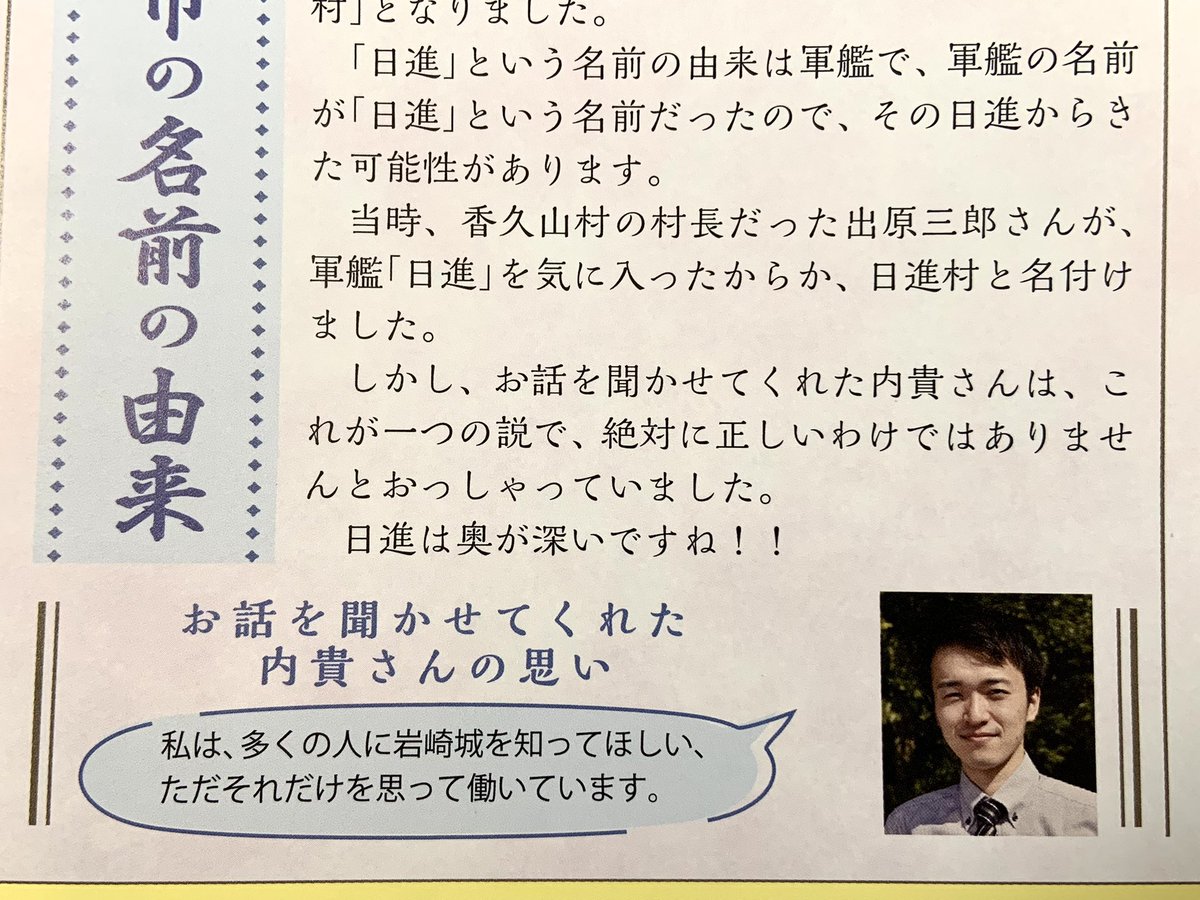 市の名前の由来
村」となりました。
「日進」という名前の由来は軍艦で、軍艦の名前
が「日進」という名前だったので、その日進からき
た可能性があります。
当時、香久山村の村長だった出原三郎さんが、
軍艦「日進」を気に入ったからか、日進村と名付け
ました。
しかし、お話を聞かせてくれた内貴さんは、こ
れが一つの説で、絶対に正しいわけではありませ
んとおっしゃっていました。
日進は奥が深いですね！！
お話を聞かせてくれた
内貴さんの思い
私は、多くの人に岩崎城を知ってほしい、
ただそれだけを思って働いています。